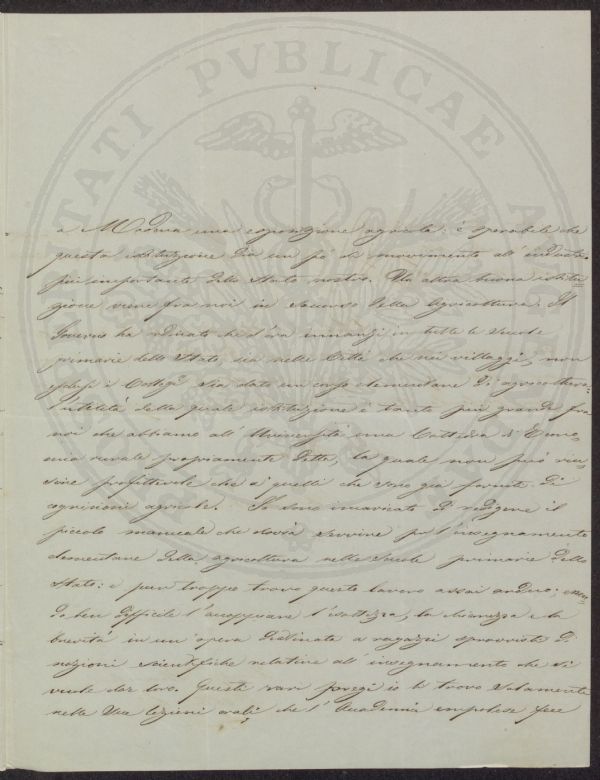 PROSPERITATI PVBLICAE AVGENDAE
a Modena una esposizione agricola: è sperabile che
questa istituzione dia un pò di movimento all' industria
più importante dello Stato nostro. Un altra buona istitu=
zione viene fra noi in soccorso della Agricoltura. Il
Governo ha ordinato che d'ora innanzi in tutte le Scuole
primarie dello Stato, sia nelle Città che nei villaggi, non
esclusi i Collegi sia dato un corso elementare di agricoltura:
l'utilità della quale istituzione è tanto più grande fra
noi che abbiamo all' Università una Cattedra d' Econo=
mia rurale propriamente detta, la quale non può riu=
scire profittevole che a quelli che sono già forniti di
cognizioni agricole. Io sono incaricato di redigere il
piccolo manuale che dovrà servire per l'insegnamento
elementare della agricoltura nelle Scuole primarie dello
Stato: e pur troppo trovo questo lavoro assai arduo; essen=
do ben difficile l'accoppiare l'esattezza, la chiarezza e la
brevità in un' opera destinata a ragazzi sprovvisti di
nozioni scientifiche relative all' insegnamento che si
vuole dar loro. Questi rari pregi io li trovo solamente
nelle due lezioni orali che l' Accademia empolese fece